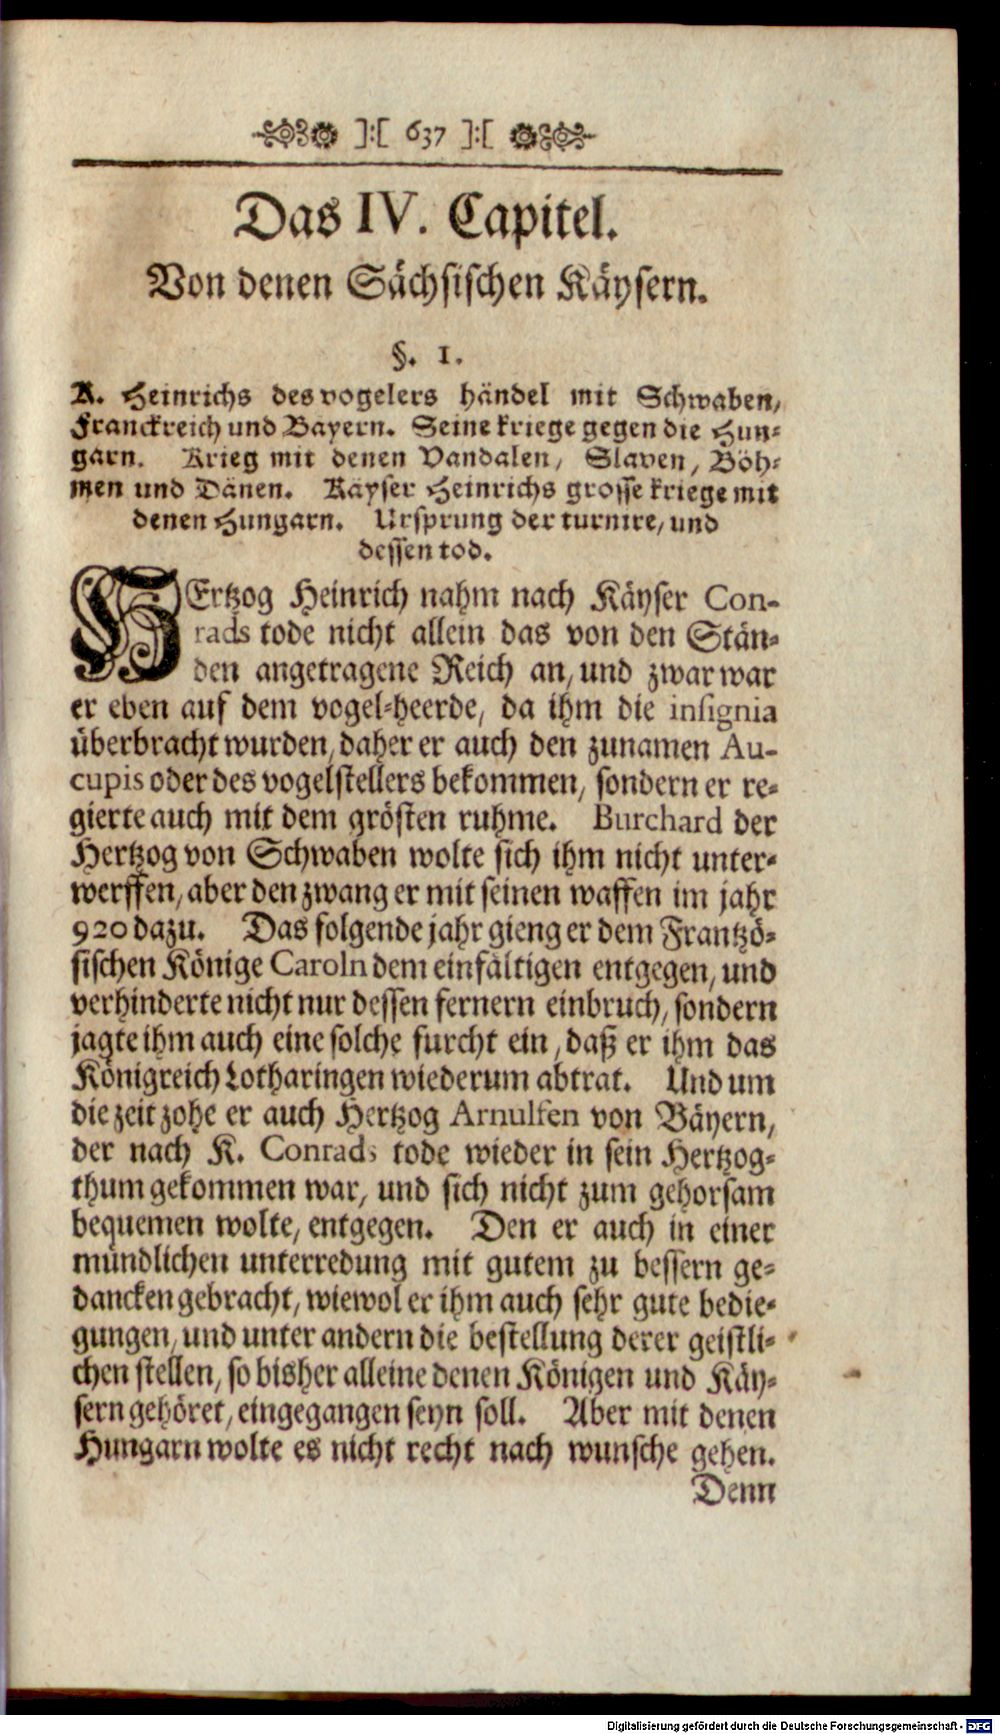 ]:[ 637 ]:[
Das IV. Capitel.
Von denen Sächsischen Käysern.
§. 1.
K. Heinrichs des vogelers händel mit Schwaben,
Franckreich und Bayern. Seine kriege gegen die Hun-
garn. Krieg mit denen Vandalen, Slaven, Böh-
men und Dänen. Käyser Heinrichs grosse kriege mit
denen Hungarn. Ursprung der turnire, und
dessen tod.
HErtzog Heinrich nahm nach Käyser Con-
rads tode nicht allein das von den Stän-
den angetragene Reich an, und zwar war
er eben auf dem vogel-heerde, da ihm die insignia
überbracht wurden, daher er auch den zunamen Au-
cupis oder des vogelstellers bekommen, sondern er re-
gierte auch mit dem grösten ruhme. Burchard der
Hertzog von Schwaben wolte sich ihm nicht unter-
werffen, aber den zwang er mit seinen waffen im jahr
920 dazu. Das folgende jahr gieng er dem Frantzö-
sischen Könige Caroln dem einfältigen entgegen, und
verhinderte nicht nur dessen fernern einbruch, sondern
jagte ihm auch eine solche furcht ein, daß er ihm das
Königreich Lotharingen wiederum abtrat. Und um
die zeit zohe er auch Hertzog Arnulfen von Bäyern,
der nach K. Conrads tode wieder in sein Hertzog-
thum gekommen war, und sich nicht zum gehorsam
bequemen wolte, entgegen. Den er auch in einer
mündlichen unterredung mit gutem zu bessern ge-
dancken gebracht, wiewol er ihm auch sehr gute bedie-
gungen, und unter andern die bestellung derer geistli-
chen stellen, so bisher alleine denen Königen und Käy-
sern gehöret, eingegangen seyn soll. Aber mit denen
Hungarn wolte es nicht recht nach wunsche gehen.
Denn
Digitalisierung gefördert durch die Deutsche Forschungsgemeinschaft - DFG